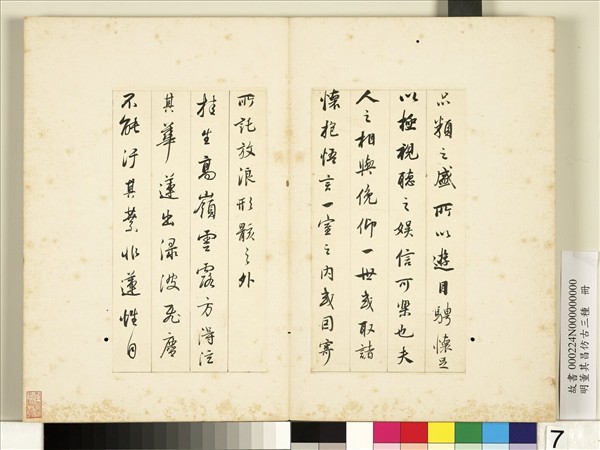 品類之盛所以遊目騁懷足
以極視聽之娛信可樂也夫
人之相與俯仰一世或取諸
懷抱悟言一室之內或因寄
所託放浪形骸之外
桂生高嶺雲露方得泫
其華蓮出淥波飛塵
不能汙其葉非蓮性自
故書000224N000000000
明董其昌仿古三種 冊
7